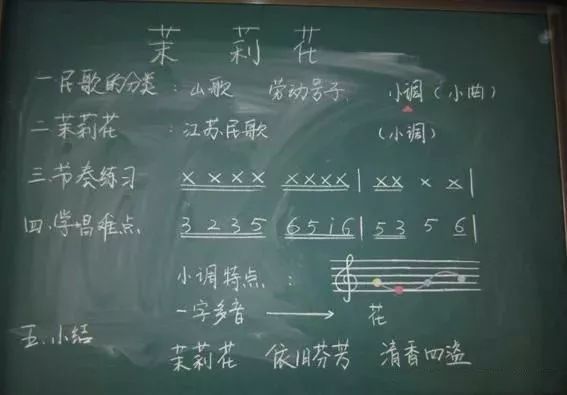 茉莉花
一民歌的分类：山歌 劳动号子、小调（小曲）
二茉莉花：江苏民歌（小调）
三.节奏练习 x x x x x x x x | x x x x |
四.学唱难点 3 2 3 5 6 5 i 6 | 5 3 5 6 |
小调特点：
一字多音 → 花
五.小结
茉莉花 依旧芬芳 清香四溢